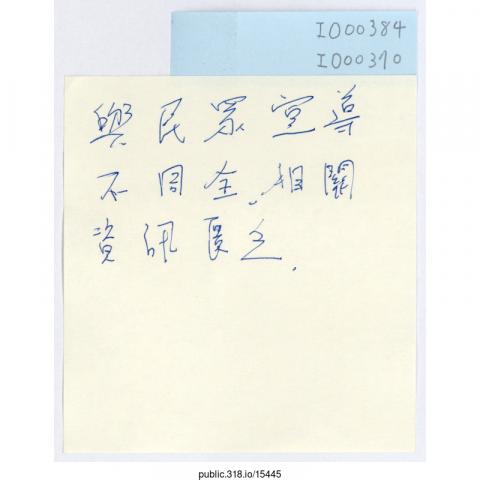 IO00384
IO00370
與民眾宣導
不周全.相關
資訊匱乏.
public.318.io/15445